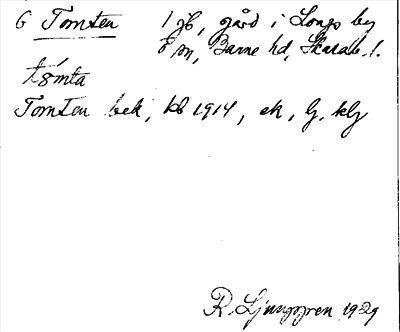 G Tomten 1 jb, gård i Longs by
s n, Barne hd, Skarab. l.
tómta
Tomten bek, kb 1914, ek, lj, klj
R. Ljunggren 1929